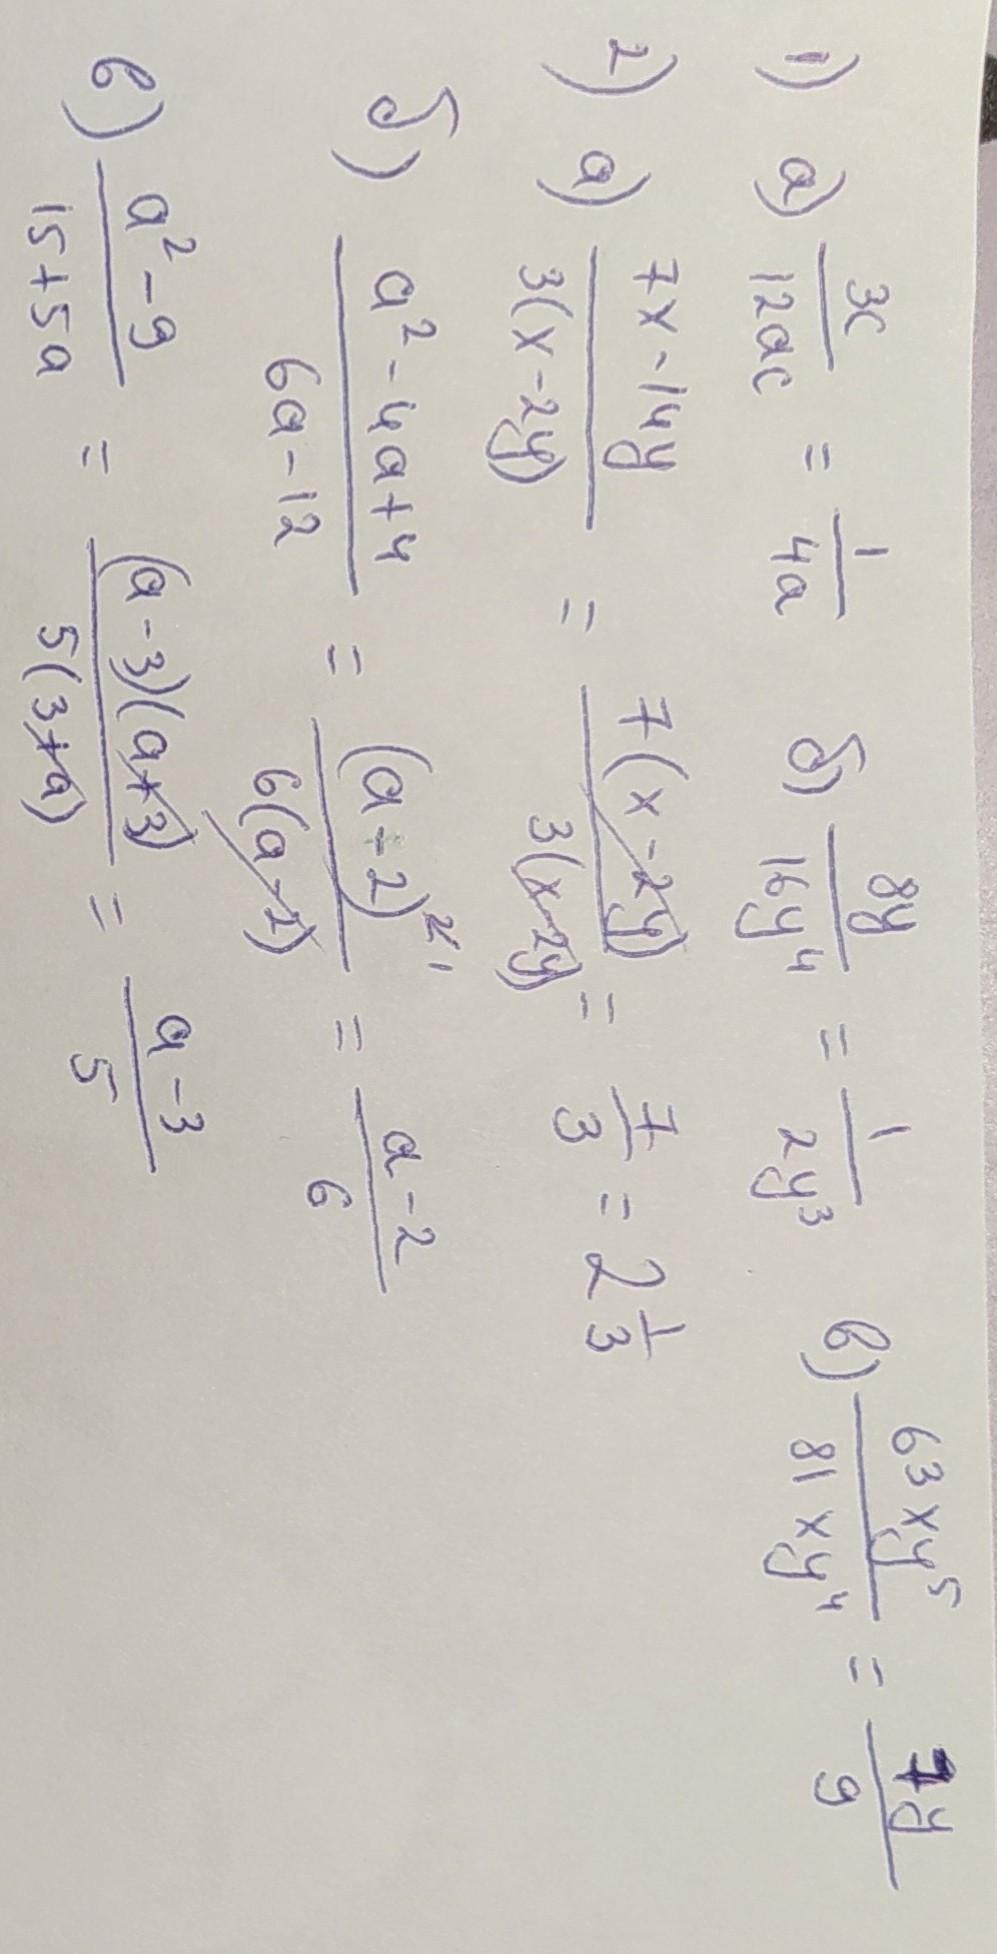 1) а) 3c/12ac = 1/4a б) 8y/16y⁴ = 1/2y³ в) 63xy⁵/81xy⁴ = 7y/9
2) а) 7x-14y/3(x-2y) = 7(x-2y)/3(x-2y) = 7/3 = 2 1/3
б) a²-4a+4/6a-12 = (a-2)²/6(a-2) = a-2/6
в) a²-9/15+5a = (a-3)(a+3)/5(3+a) = a-3/5